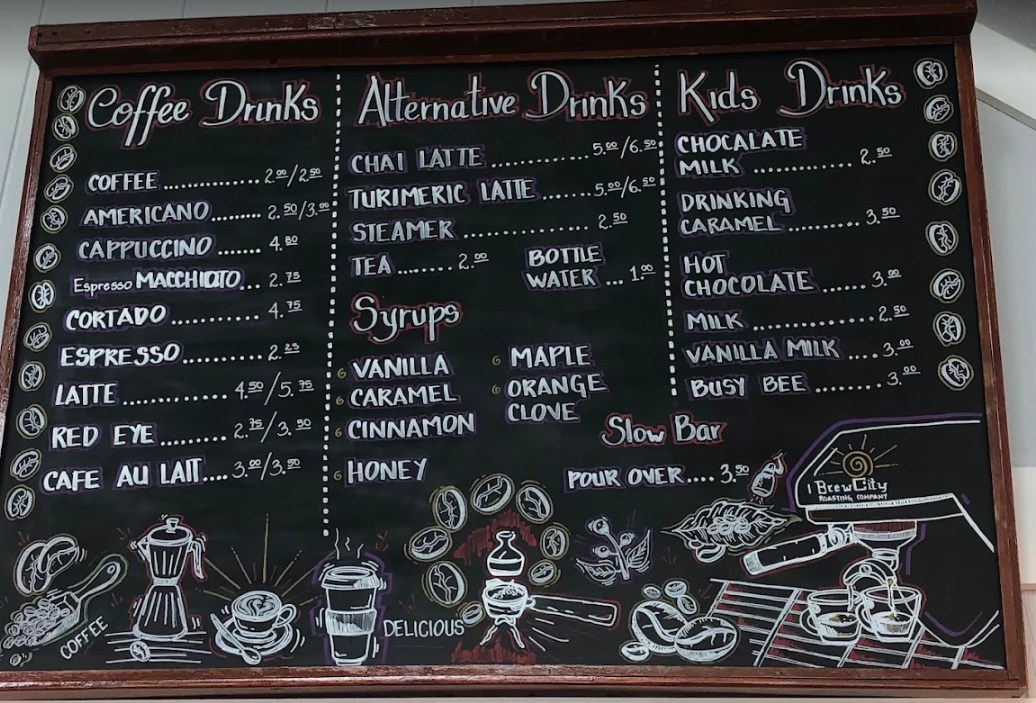 Coffee Drinks
COFFEE................2.00/2.50
AMERICANO.........2.50/3.00
CAPPUCCINO......4.80
Espresso MACCHIOTO...2.75
CORTADO...........4.75
ESPRESSO..........2.25
LATTE.............4.50/5.75
RED EYE.........2.75/3.50
CAFE AU LAIT....3.00/3.50
Alternative Drinks
CHAI LATTE............5.00/6.50
TURIMERIC LATTE......5.00/6.50
STEAMER................2.50
TEA.......2.00
BOTTLE
WATER...1.00
Syrups
VANILLA
CARAMEL
CINNAMON
HONEY
MAPLE
ORANGE
CLOVE
Slow Bar
POUR OVER....3.50
Kids Drinks
CHOCALATE
MILK............2.50
DRINKING
CARAMEL.........3.50
HOT
CHOCOLATE......3.00
MILK..............2.50
VANILLA MILK....3.00
BUSY BEE........3.00
I BrewCity
ROASTING COMPANY
COFFEE
DELICIOUS